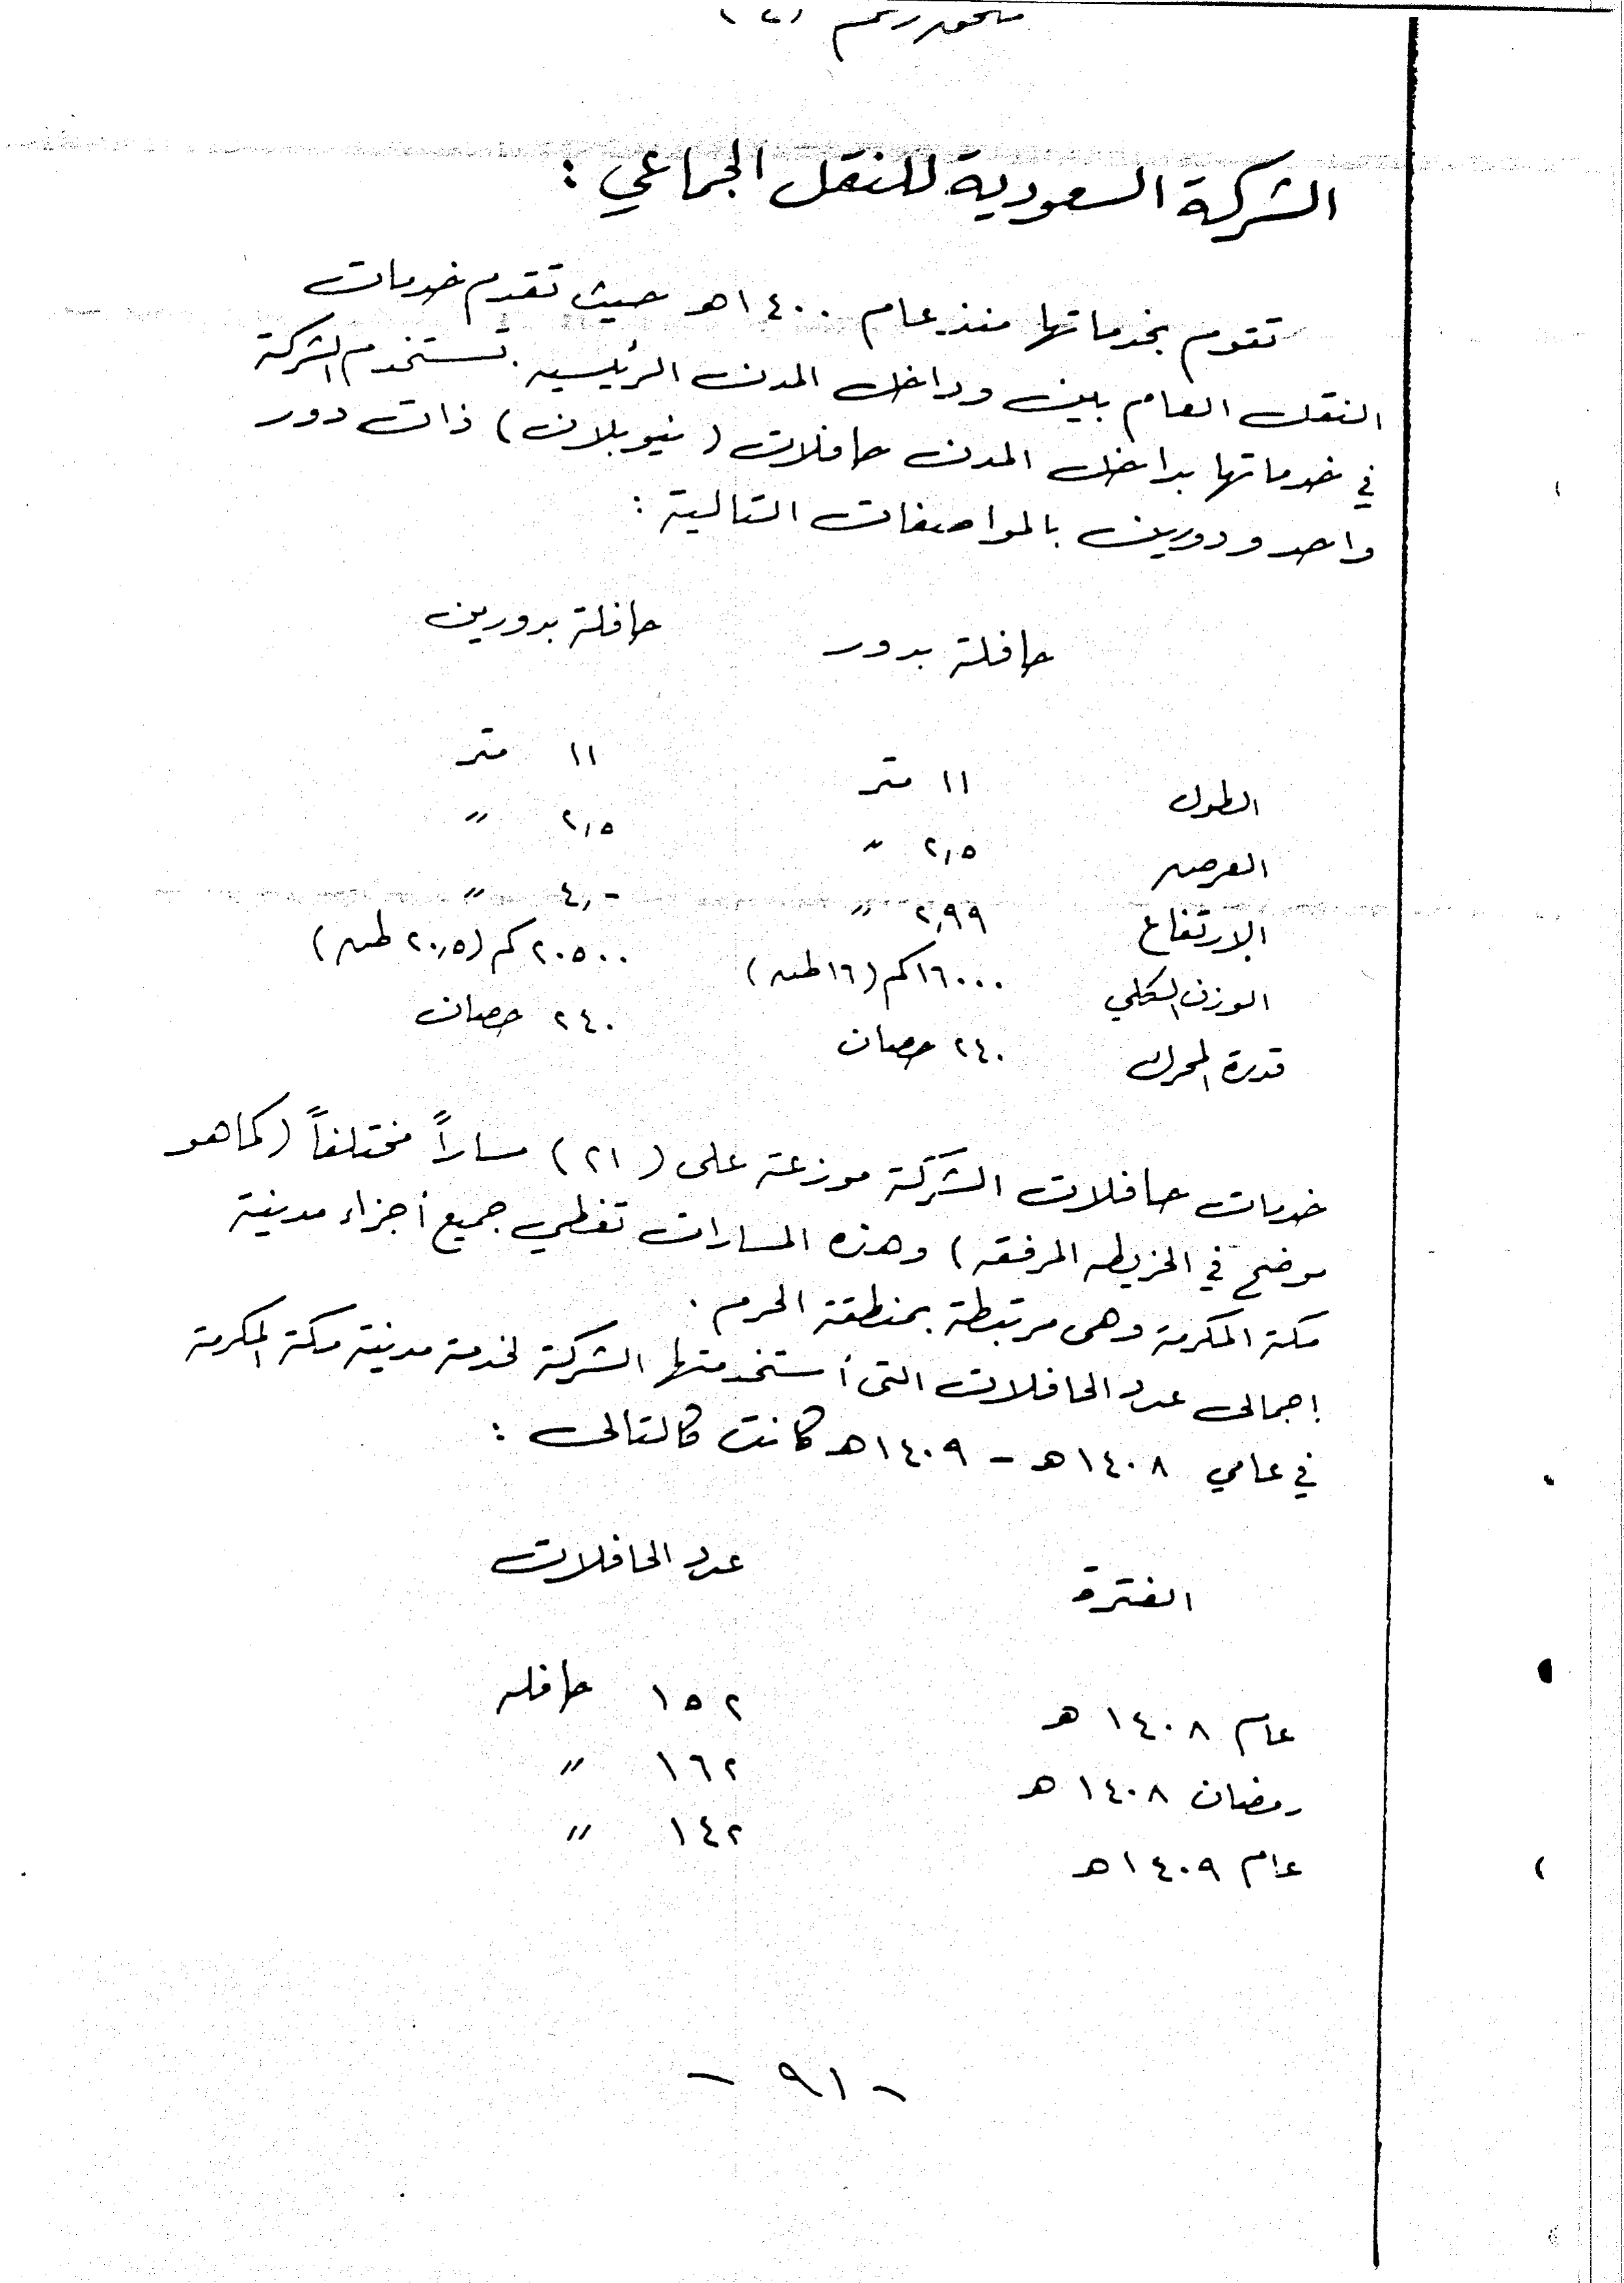 ملحق رقم
الشركة السعودية للنقل الجماعي :
تقوم بخدماتها منذ عام ١٤٠٠هـ حيث تقدم خدمات
النقل العام بين وداخل المدن الرئيسيه . تستخدم الشركة
في خدماتها بداخل المدن حافلات ( نيوبلان ) ذات دور
واحد ودورين بالمواصفات التالية :
حافلة بدور حافلة بدورين
الطول ١١ متر ١١ متر
العرض ٢,٥ " ٢,٥ "
الارتفاع ٢,٩٩ " ٤,- "
الوزن الكلي ١٦٠٠٠ كم (١٦ طن) ٢٠٥٠٠ كم (٢٠,٥ طن)
قدرة المحرك ٢٤٠ حصان ٢٤٠ حصان
خدمات حافلات الشركة موزعة على (٢١) مساراً مختلفاً (كما هو
موضح في الخريطه المرفقه) وهذه المسارات تغطي جميع أجزاء مدينة
مكة المكرمة وهى مرتبطة بمنطقة الحرم .
إجمالى عدد الحافلات التى أستخدمتها الشركة لخدمة مدينة مكة المكرمة
في عامي ١٤٠٨هـ - ١٤٠٩هـ كانت كالتالى :
الفترة عدد الحافلات
عام ١٤٠٨ هـ ١٥٢ حافله
رمضان ١٤٠٨ هـ ١٦٢ "
عام ١٤٠٩هـ ١٤٢ "
- ٩١ -